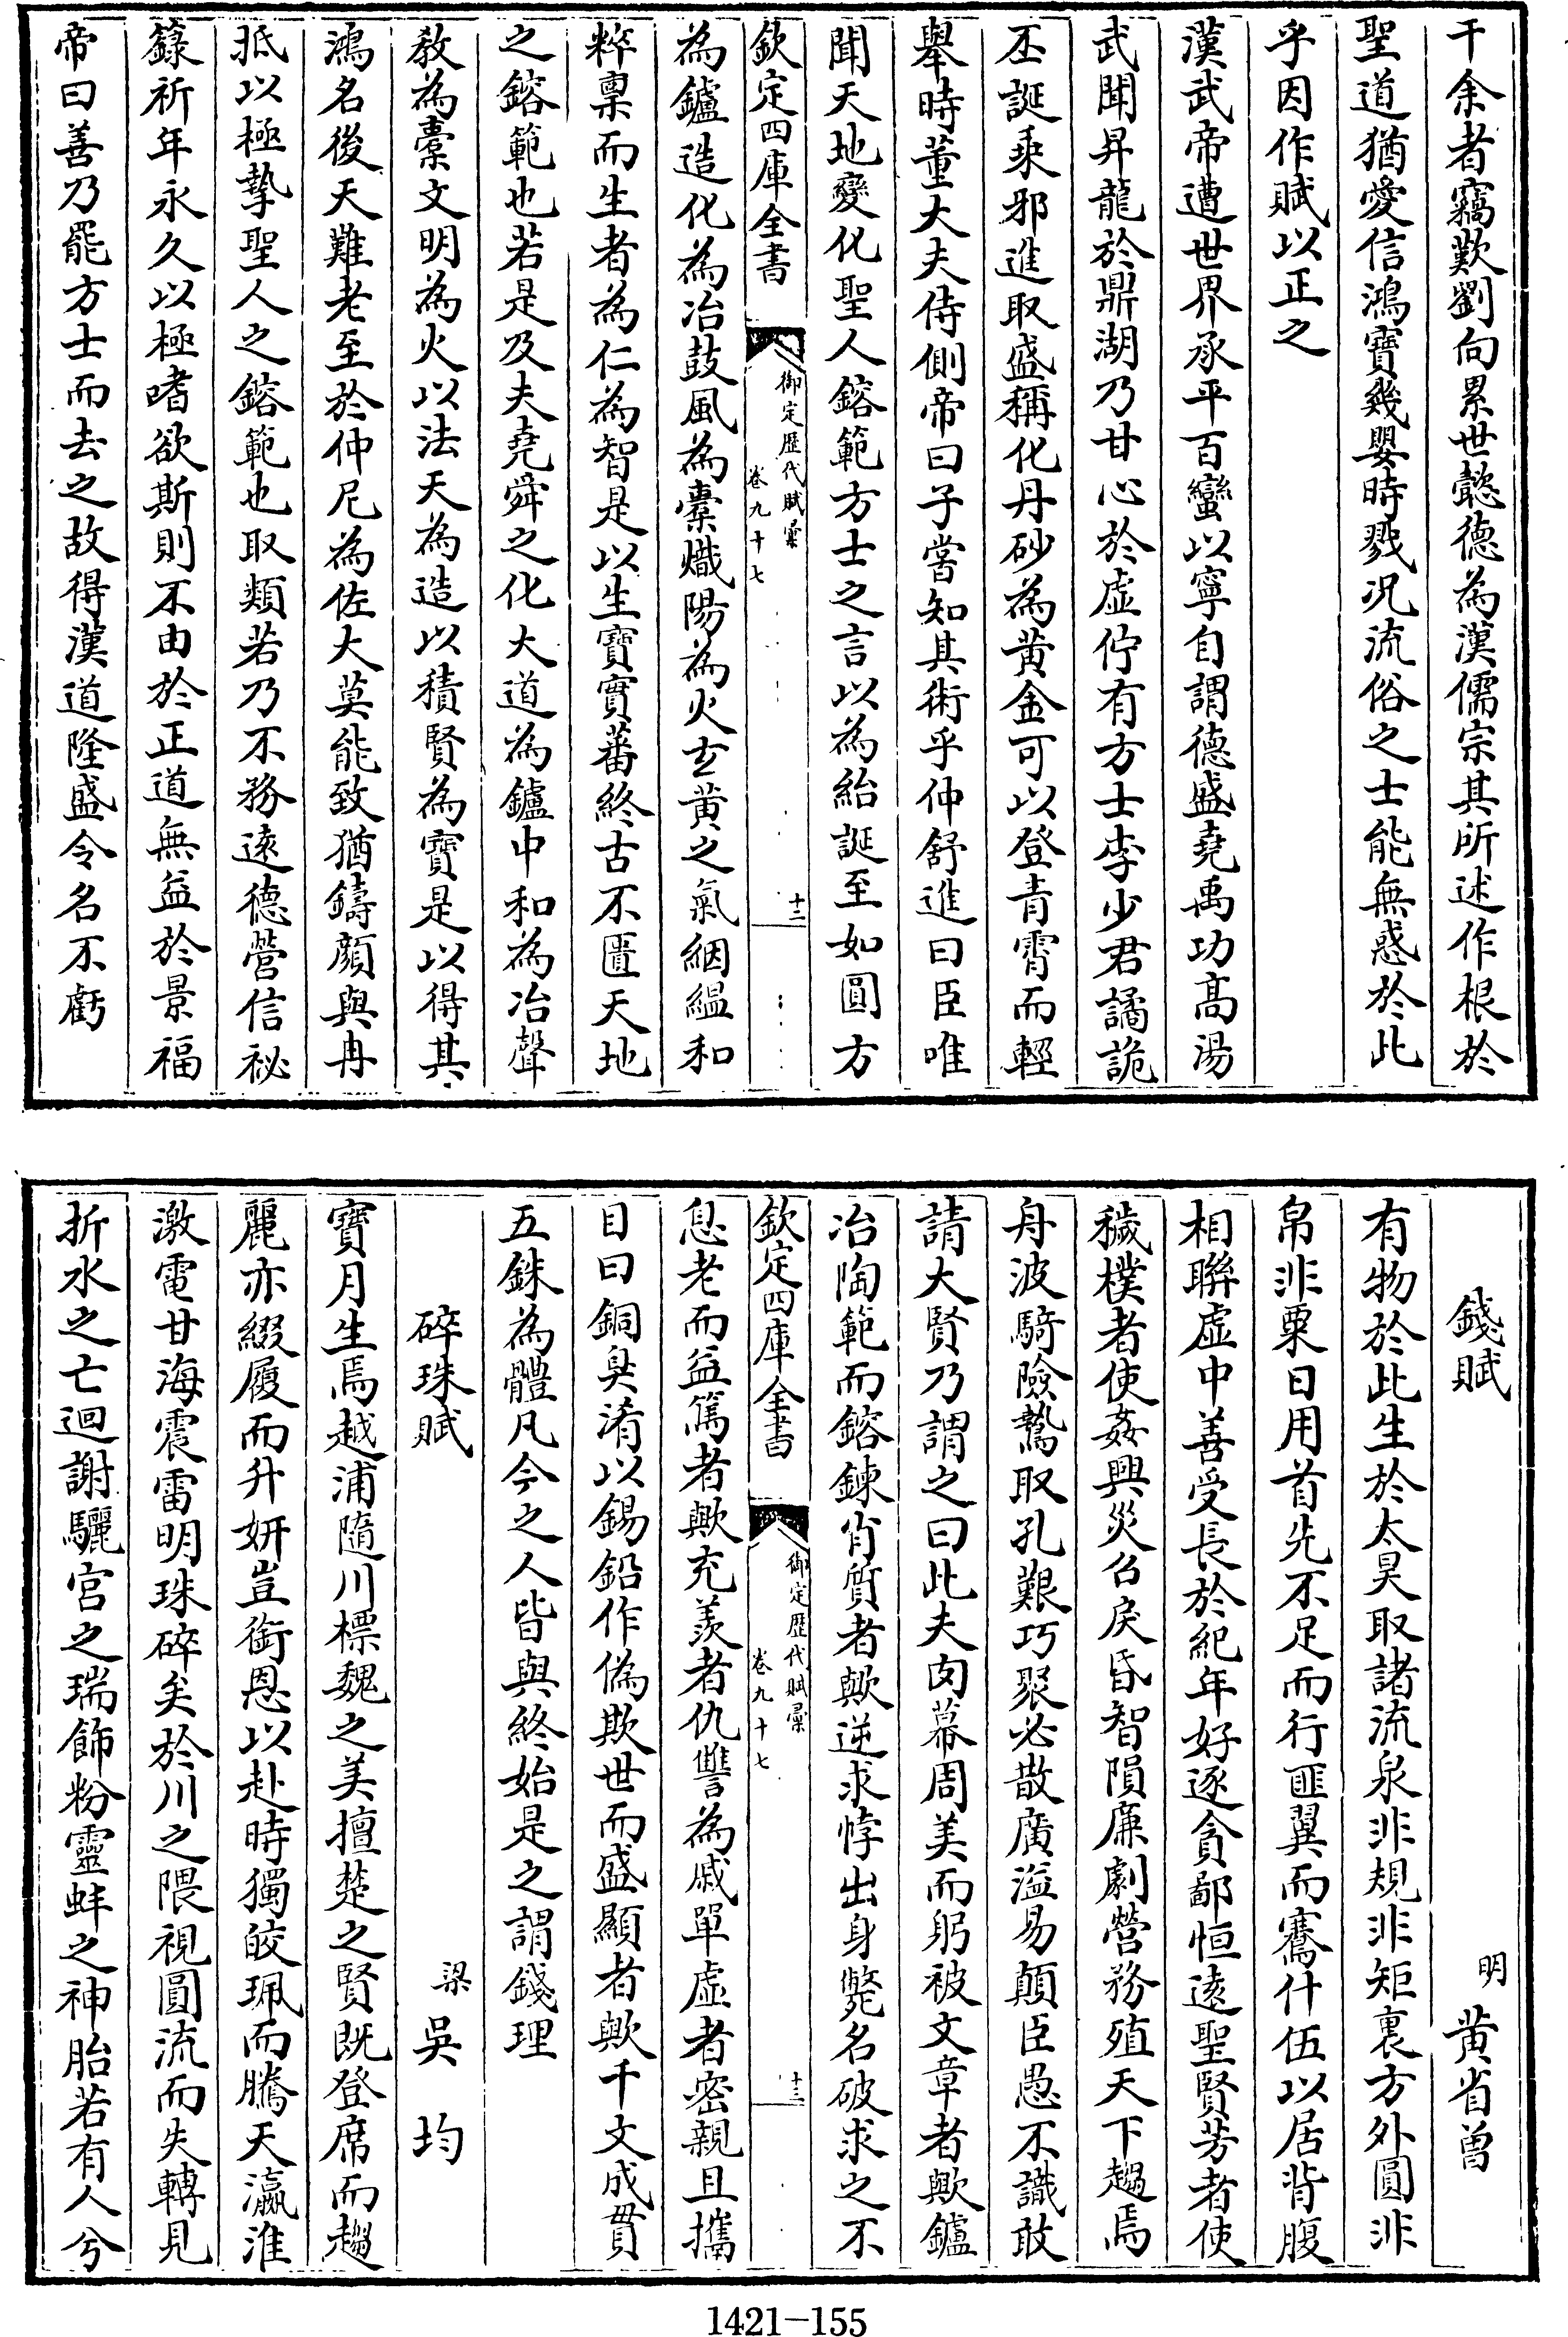 干余者竊歎劉向累世懿德為漢儒宗其所述作根於
聖道猶愛信鴻寶幾嬰時戮况流俗之士能無惑於此
乎因作賦以正之
漢武帝遭世界承平百蠻以寧自謂德盛堯禹功髙湯
武聞昇龍於鼎湖乃甘心於虚佇有方士李少君譎詭
丕誕乘邪進取盛稱化丹砂為黄金可以登青霄而輕
舉時董大夫侍側帝曰子嘗知其術乎仲舒進曰臣唯
聞天地變化聖人鎔範方士之言以為紿誕至如圓方
欽定四庫全書
御定歴代賦彚
卷九十七
十二
為鑪造化為冶鼓風為橐熾陽為火𤣥黄之氣絪緼和
粹稟而生者為仁為智是以生寶實蕃終古不匱天地
之鎔範也若是及夫堯舜之化大道為鑪中和為冶聲
敎為橐文明為火以法天為造以積賢為寶是以得其
鴻名後天難老至於仲尼為佐大莫能致猶鑄顔與冉
抵以極摯聖人之鎔範也取類若乃不務逺德營信祕
籙祈年永久以極嗜欲斯則不由於正道無益於景福
帝曰善乃罷方士而去之故得漢道隆盛令名不虧
錢賦
明 黄省曾
有物於此生於太昊取諸流泉非規非矩裏方外圓非
帛非粟日用首先不足而行匪翼而騫什伍以居背腹
相聯虚中善受長於紀年好逐貪鄙恒逺聖賢芳者使
穢樸者使姦興災召戾昏智隕廉劇營務殖天下趨焉
舟波騎險騖取孔艱巧聚必散廣溢易顛臣愚不識敢
請大賢乃謂之曰此夫肉幕周美而躬被文章者歟鑪
冶陶範而鎔鍊肖質者歟逆求悖出身斃名破求之不
欽定四庫全書
御定歴代賦彚
卷九十七
十三
息老而益篤者歟充羨者仇讐為戚單虚者密親且攜
目曰銅臭淆以錫鉛作偽欺世而盛顯者歟千文成貫
五銖為體凡今之人皆與終始是之謂錢理
碎珠賦
梁 吳均
寶月生焉越浦隨川標魏之美擅楚之賢既登席而趨
麗亦綴履而升妍豈銜恩以赴時獨皎珮而騰天瀛淮
激電甘海震雷明珠碎矣於川之隈視圓流而失轉見
折水之亡迴謝驪宫之瑞飾粉靈蚌之神胎若有人兮
1421-155